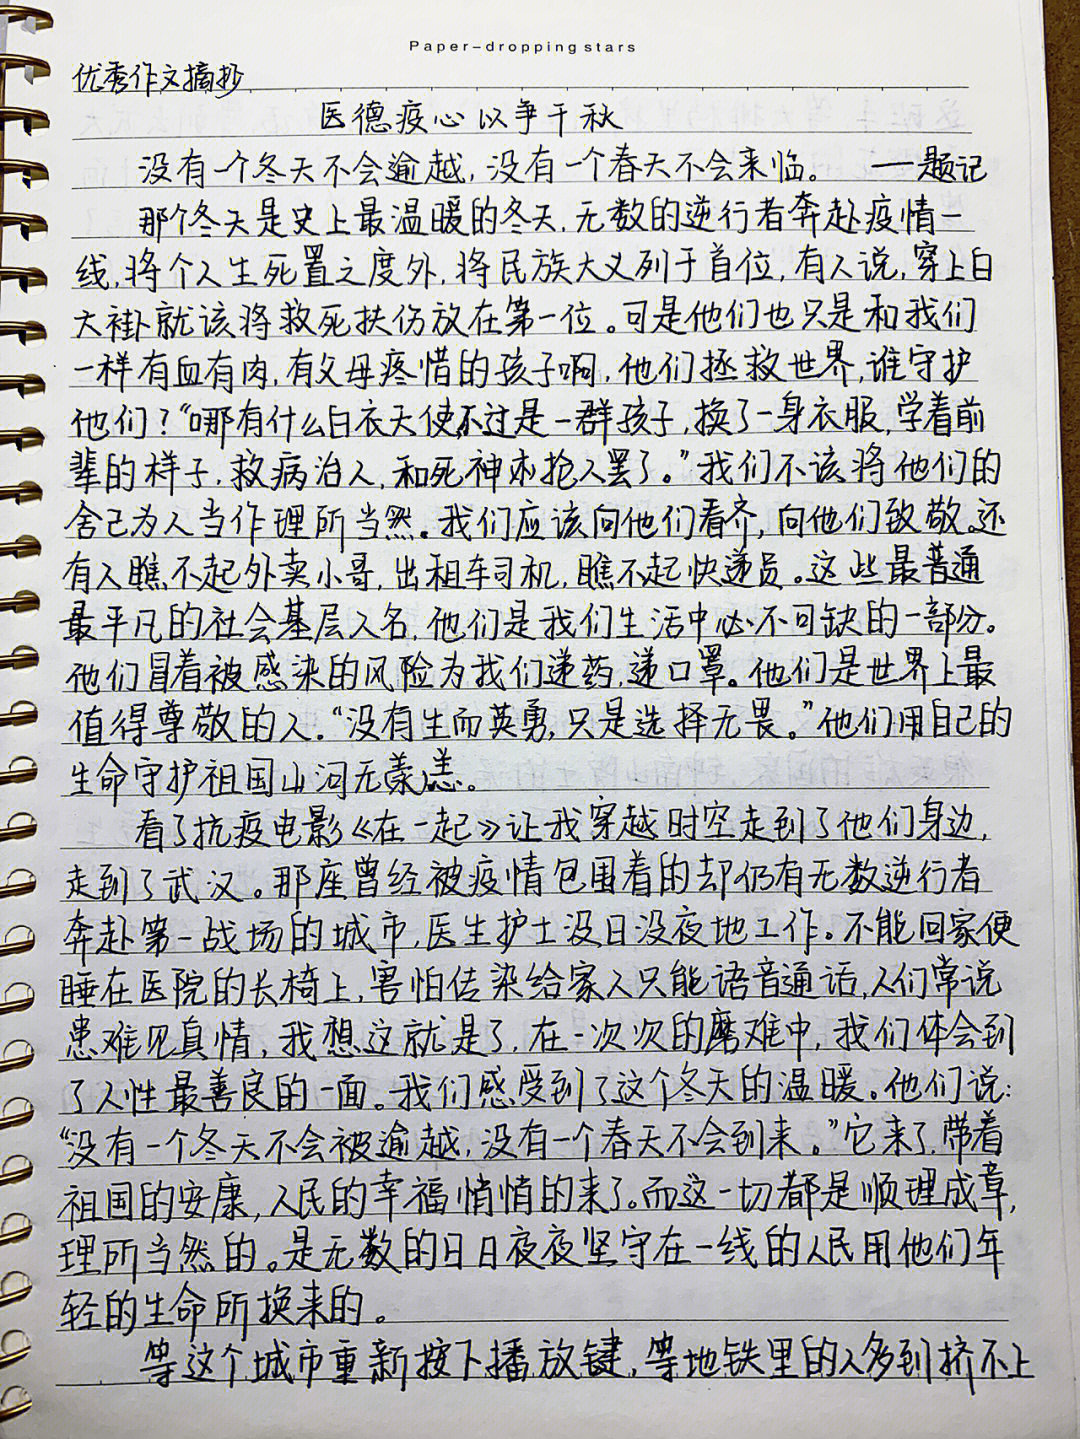 Paper-dropping stars
优秀作文摘抄
医德疫心以争千秋
没有一个冬天不会逾越,没有一个春天不会来临。 ——题记
那个冬天是史上最温暖的冬天,无数的逆行者奔赴疫情一
线,将个人生死置之度外,将民族大义列于首位,有人说,穿上白
大褂就该将救死扶伤放在第一位。可是他们也只是和我们
一样有血有肉,有父母疼惜的孩子啊,他们拯救世界,谁守护
他们?“哪有什么白衣天使,不过是一群孩子,换了一身衣服,学着前
辈的样子,救病治人,和死神抢人罢了。”我们不该将他们的
舍己为人当作理所当然。我们应该向他们看齐,向他们致敬。还
有人瞧不起外卖小哥,出租车司机,瞧不起快递员。这些最普通
最平凡的社会基层人名,他们是我们生活中必不可缺的一部分。
他们冒着被感染的风险为我们递药,递口罩。他们是世界上最
值得尊敬的人。“没有生而英勇,只是选择无畏。”他们用自己的
生命守护祖国山河无恙。
看了抗疫电影《在一起》让我穿越时空走到了他们身边,
走到了武汉。那座曾经被疫情包围着的却仍有无数逆行者
奔赴第一战场的城市,医生护士没日没夜地工作。不能回家便
睡在医院的长椅上,害怕传染给家人只能语音通话,人们常说
患难见真情,我想这就是了,在一次次的磨难中,我们体会到
了人性最善良的一面。我们感受到了这个冬天的温暖。他们说:
“没有一个冬天不会被逾越,没有一个春天不会到来。”它来了,带着
祖国的安康,人民的幸福悄悄的来了。而这一切都是顺理成章,
理所当然的。是无数的日日夜夜坚守在一线的人民用他们年
轻的生命所换来的。
等这个城市重新按下播放键,等地铁里的人多到挤不上